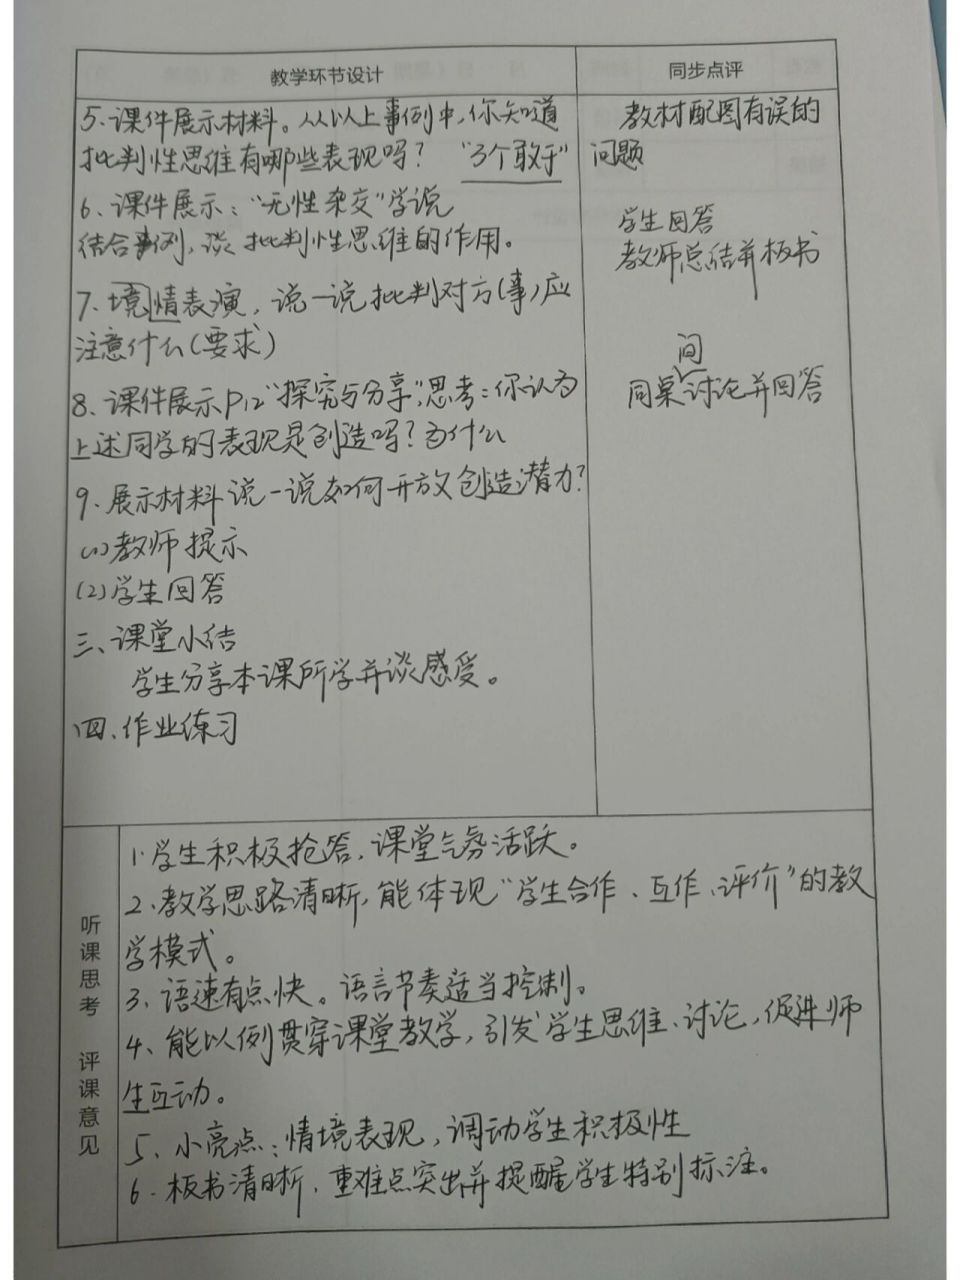 教学环节设计
同步点评
5、课件展示材料。从以上事例中,你知道
批判性思维有哪些表现吗? "3个敢于"
6、课件展示:"无性杂交"学说
结合事例,谈批判性思维的作用。
7、境情表演,说一说批判对方(事)应
注意什么(要求)
8、课件展示P12"探究与分享",思考:你认为
上述同学的表现是创造吗?为什么
9、展示材料说一说如何开放创造潜力?
(1)教师提示
(2)学生回答
三、课堂小结
学生分享本课所学并谈感受。
四、作业练习
教材配图有误的
问题
学生回答
教师总结并板书
间
同桌讨论并回答
听课思考 评课意见
1、学生积极抢答,课堂气氛活跃。
2、教学思路清晰,能体现"学生合作、互作、评价"的教
学模式。
3、语速有点快。语言节奏适当控制。
4、能以例贯穿课堂教学,引发学生思维、讨论,促进师
生互动。
5、小亮点:情境表现,调动学生积极性
6、板书清晰,重难点突出并提醒学生特别标注。